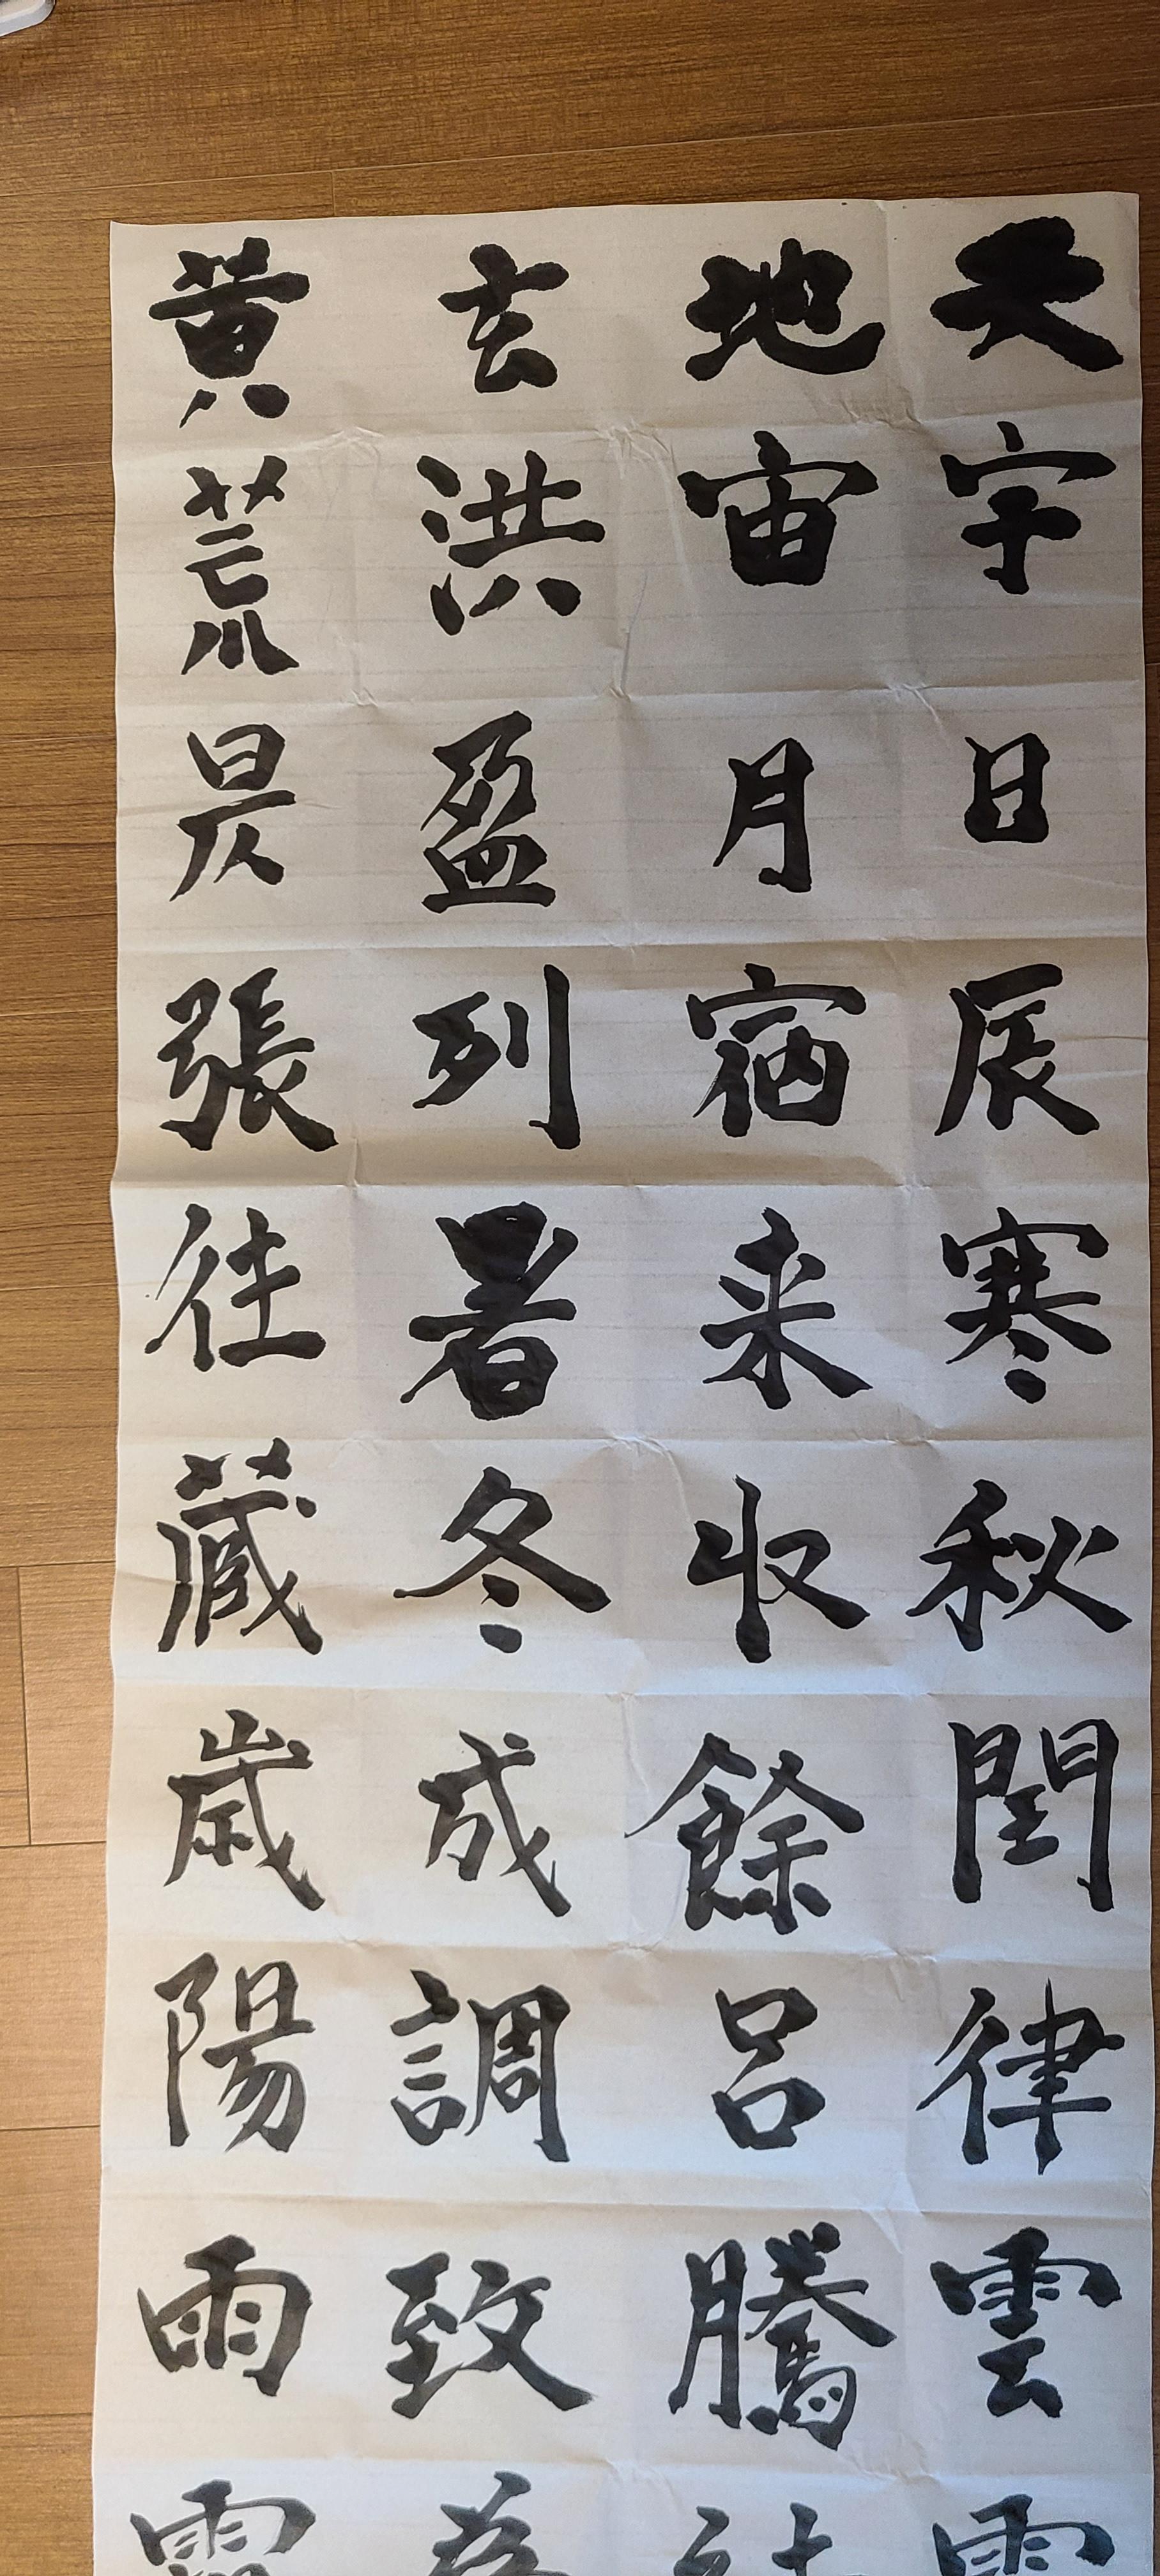 天地玄黄
宇宙洪荒
日月盈昃
辰宿列張
寒来暑往
秋収冬蔵
閏餘成歳
律呂調陽
雲騰致雨